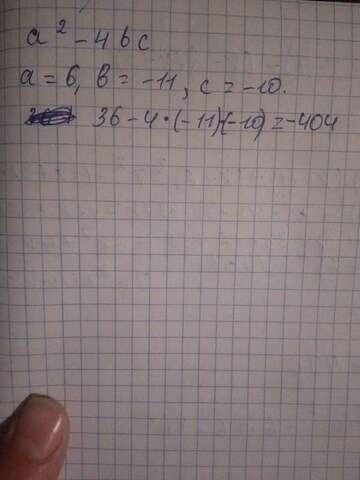 a² - 4bc
a = 6, b = -11, c = -10.
36 - 4·(-11)(-10) = -404